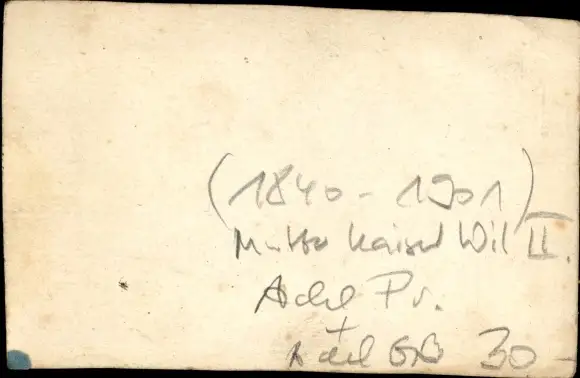 (1840 - 1901)
Mutter Kaiser Wil II.
Adel Pr.
+
Adel GB 30 -